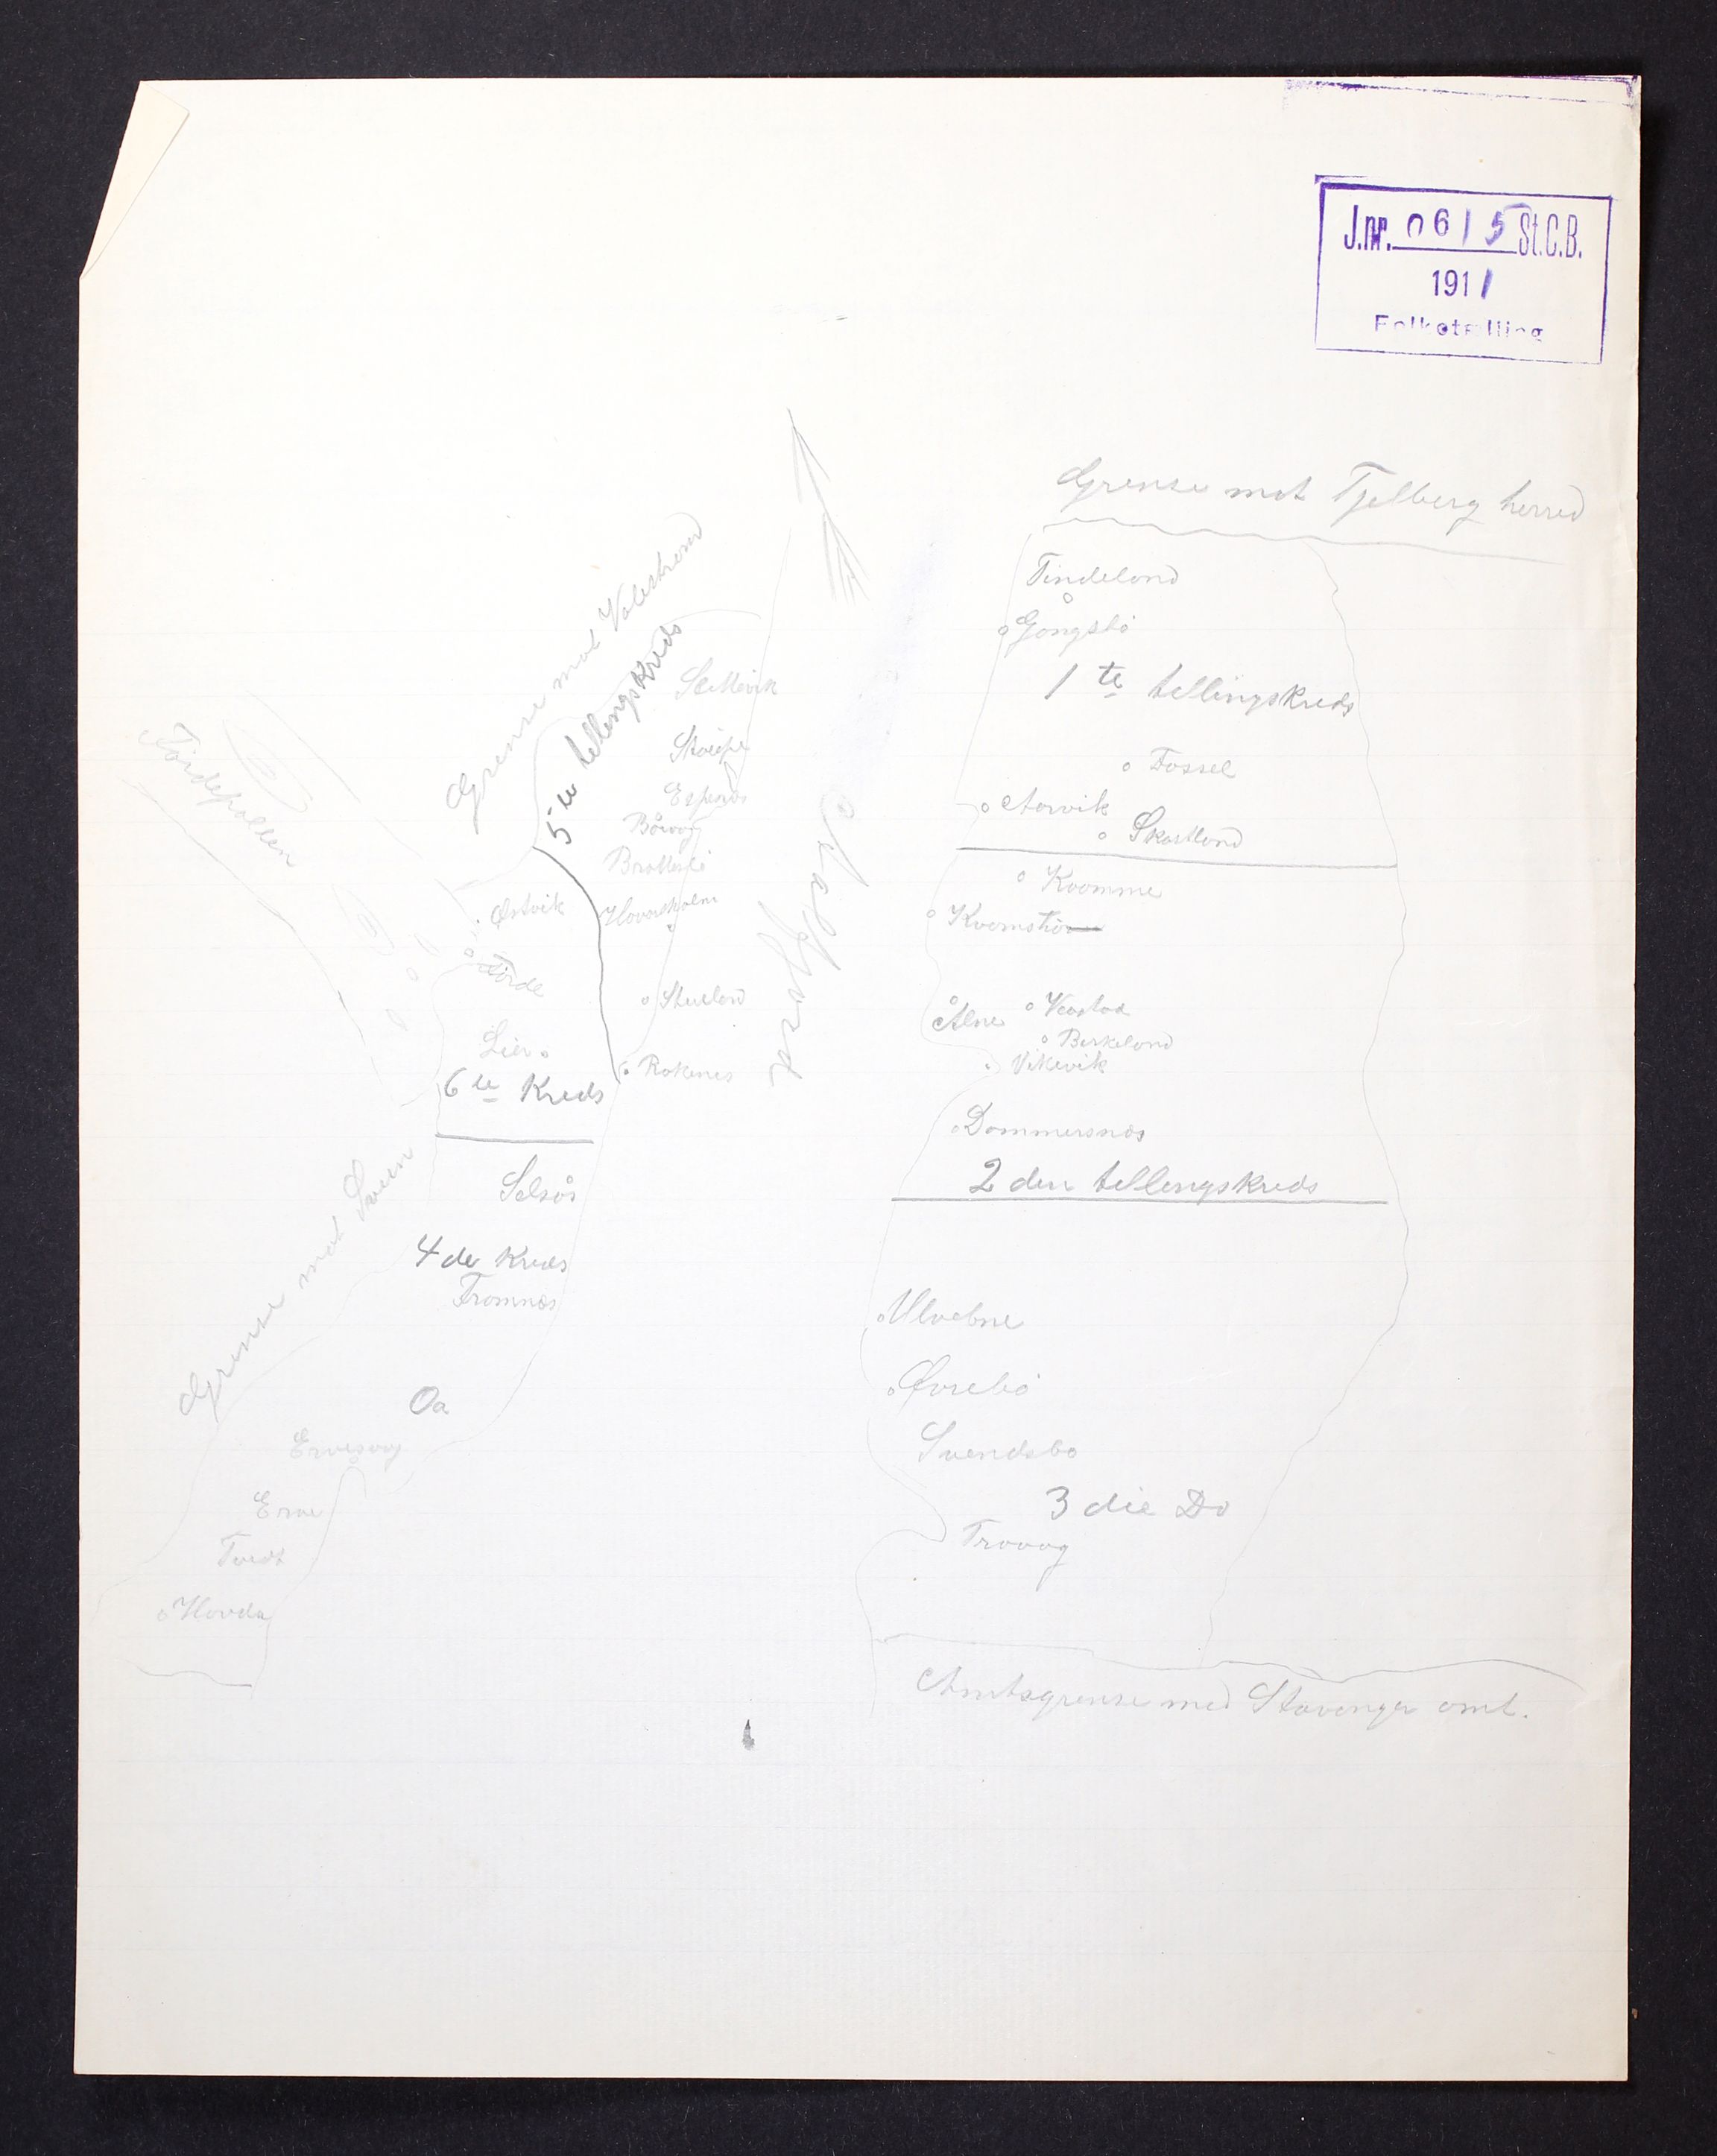 J.nr. 0615 St.C.B.
1911
Folketælling
Grense mot Fjelberg herred
Tindeland
Gongstö
1 te tellingskreds
Fossel
Aarvik
Skartland
Kvamme
Alne
Vaastad
Birkeland
Vikevik
Dommersnæs
2 den tellingskreds
Ulvebne
Øvrebö
Svendsbø
3 die Do
Trovaag
Amtsgrense med Stavanger amt.
Aalfjord
Grense mot Valestrand
5 te tellingskreds
Sællevik
Skveipe
Espenæs
Båvåg
Bratteslö
Hovarsholm
Stueland
Rokenes
Førdepollen
Østvik
Förde
Lier
6 te Kreds
Grense mot Sveen
Selsås
4 de Kreds
Tromnæs
Oa
Ervesvåg
Erve
Tvedt
Hovda